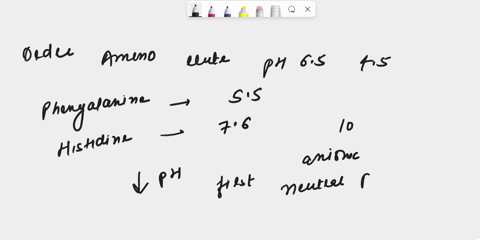 Order Amino elute pH 6.5 4.5
Phenyalanine → 5.5
Histidine → 7.6 10
anionic
↓ pH first neutral